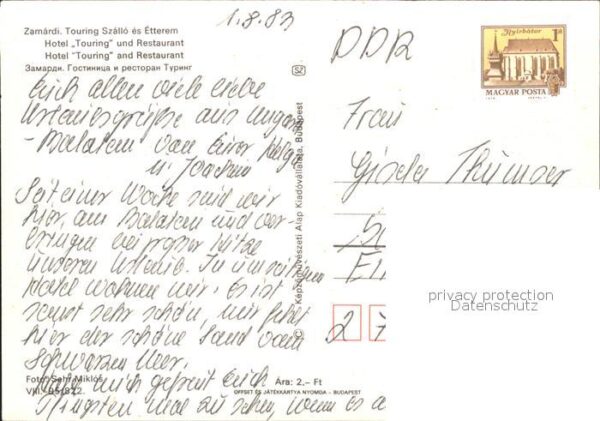 1.8.83
Zamárdi. Touring Szálló és Étterem
Hotel „Touring" und Restaurant
Hotel "Touring" and Restaurant
Замарди. Гостиница и ресторан Туринг
Euch allen viele liebe
Urlaubsgrüße aus Ungarn
- Balaton von Eurer Helga
u. Joachim
Seit einer Woche sind wir
hier, am Balaton und ver-
bringen bei großer Hitze
unseren Urlaub. In
Hotel wohnen wir. Es ist
sonst sehr schön, mir fehlt
hier der schöne Sand vom
Schwarzen Meer.
mich gefreut Euch
Pfingsten mal zu sehen, wenn es a
Foto: Sehr Miklós
Ára: 2,– Ft
OFFSET ÉS JÁTÉKKÁRTYA NYOMDA - BUDAPEST
SZ
© Képzőművészeti Alap Kiadóvállalata, Budapest
DDR
Nyírbátor
1Ft
MAGYAR POSTA
Frau
Gisela
2 7
privacy protection
Datenschutz